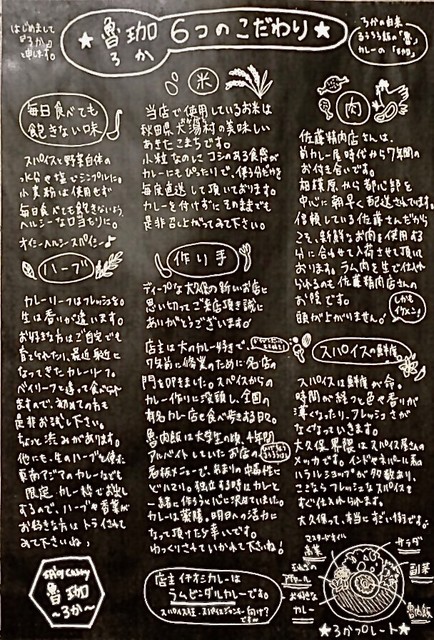 はじめまして
「ろか」
と申します。
魯珈
ろか
6つのこだわり
ろかの由来
るうろう飯の「魯」
カレーの「珈」
毎日食べても
飽きない味
スパイスと野菜自体の
水分や塩でシンプルに。
小麦粉は使用せず
毎日食べても飽きないよう
ヘルシーな口当たりに。
オイニーヘルシースパイシー♪
ハーブ
カレーリーフはフレッシュな
生は香りが違います。
お好きな方はご自宅でも
育てられたり、最近身近に
なってきたカレーリーフ。
ベイリーフと違って食べられ
ますので、初めての方も
是非お試し下さい。
ちょっと渋みがあります。
他にも、生のハーブを使った
東南アジアのカレーなども
限定カレー枠でお出し
するので、ハーブや香菜が
お好きな方はトライされて
みて下さいね♪
SPicy Curry
魯珈
~ろか~
米
当店で使用しているお米は
秋田県大潟村の美味しい
あきたこまちです。
小粒なのにコシのある食感が
カレーにもぴったりで、使う分だけを
毎度直送して頂いております。
カレーを付けずにそのままでも
是非召し上がってみて下さい。
作り手
ディープな大久保の新しいお店に
思い切ってご来店頂き誠に
ありがとうございます!
店主は大のカレー好きで、
7年前に修業のために名店の
門を叩きました。スパイスからの
カレー作りに没頭し、全国の
有名カレー店を食べ歩きる日々。
魯肉飯は大学生の頃、4年間
アルバイトしていたお店の
名板メニューで、あまりの中毒性に
ドはマリ。独立する時はカレーと
一緒に作ろうと心に決めていました。
カレーは薬膳。明日への活力に
なって頂けたら幸いです。
ゆっくりされていかれて下さいね!
店主イチオシカレーは
ラムビンダルカレーです。
スパイス狂・スパイスジャンキー向け?
です~
肉
佐藤精肉店さんは、
前カレー屋時代から7年間の
お付き合いです。
相模原から都心部を
中心に朝早く配送されています。
信頼している佐藤さんだから
こそ、新鮮なお肉を使用する
分に合わせて入荷させて頂いて
おります。ラム肉も生で仕入れ
られるのも佐藤精肉店さんの
お陰です。
頭が上がりません!
しかも
イケメン!
スパイスの鮮度
スパイスは鮮度が命。
時間が経つと色や香りが
薄くなったり、フレッシュさが
なくなってきます。
大久保界隈はスパイス屋さんの
メッカです。インドやネパール系の
ハラルショップが多数あり、
ここならフレッシュなスパイスを
すぐ仕入れられます。
大久保って、本当にすごい街です♪
マスタードオイル
高菜
お好きな
カレー
サラダ
副菜
魯肉飯
★ろかプレート★